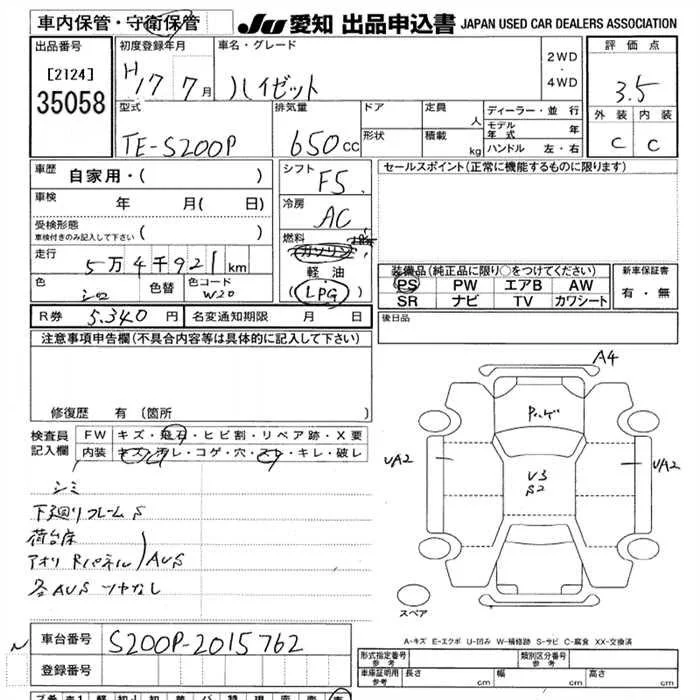 車内保管・守衛保管
JU 愛知 出品申込書 JAPAN USED CAR DEALERS ASSOCIATION
出品番号
[2124]
35058
初度登録年月
H17 7月
車名・グレード
ハイゼット
2WD
・
4WD
評価点
3.5
外装 内装
C C
型式
TE-S200P
排気量
650cc
ドア
形状
定員 人
積載 kg
ディーラー・並行
モデル年式 年
ハンドル 左・右
車歴 自家用・( )
車検 年 月( 日)
受検形態
車検付きのみ記入して下さい ( )
走行 5万4千921km
色 シロ 色替 色コード W20
シフト F5
冷房 AC
燃料
ガソリン
軽油
(LPG)
セールスポイント(正常に機能するものに限ります)
装備品(純正品に限り○をつけてください)
PS PW エアB AW
SR ナビ TV カワシート
新車保証書
有・無
R券 5.340円 名変通知期限 月 日
後日品
注意事項申告欄(不具合内容等は具体的に記入して下さい)
修復歴 有(箇所
検査員記入欄
FW キズ・飛石・ヒビ割・リペア跡・X要
内装 キズ・汚レ・コゲ・穴・スレ・キレ・破レ
シミ
下廻りフレームS
荷台床
アオリ Rパネル)AUS
各AUS ツヤなし
A4
UA2
UA2
U3
S2
スペア
A-キズ E-エクボ U-凹み W-補修跡 S-サビ C-腐食 XX-交換済
車台番号 S200P-2015762
登録番号
型式指定番号 参考
類別区分番号 参考
車庫証明用 参考 長さ cm 幅 cm 高さ cm